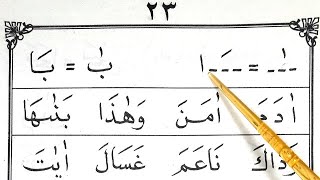 ٢٣
ـٰـ = ـَـا بٰ = بَا
اٰدَمَ اٰمَنَ وَهٰذَا بَنٰىهَا
نَاعَمَ غَسَالَ اٰيٰتَ